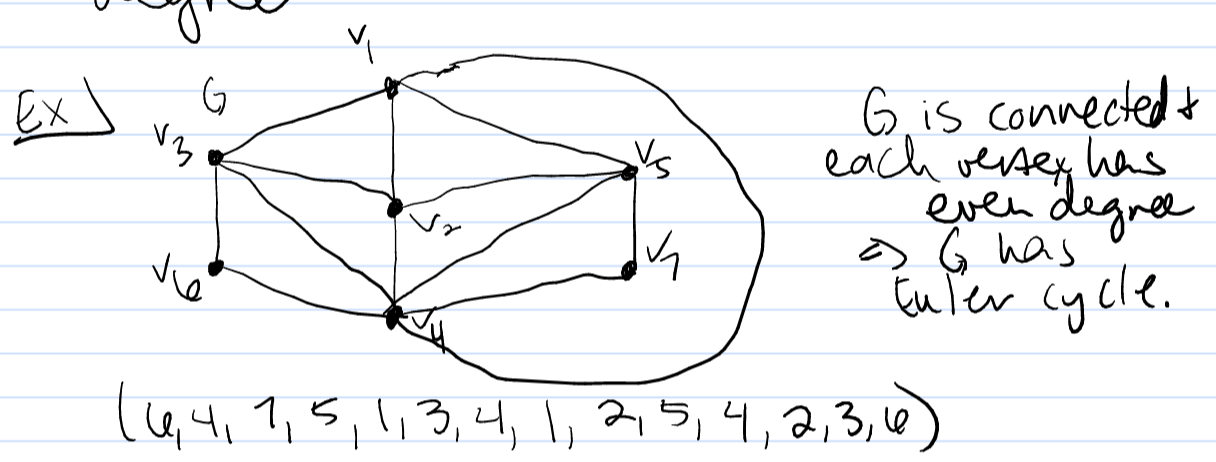 degree
Ex)
G
v1
v3
v5
v2
v6
v7
v4
G is connected +
each vertex has
even degree
⇒ G has
Euler cycle.
(6, 4, 7, 5, 1, 3, 4, 1, 2, 5, 4, 2, 3, 6)